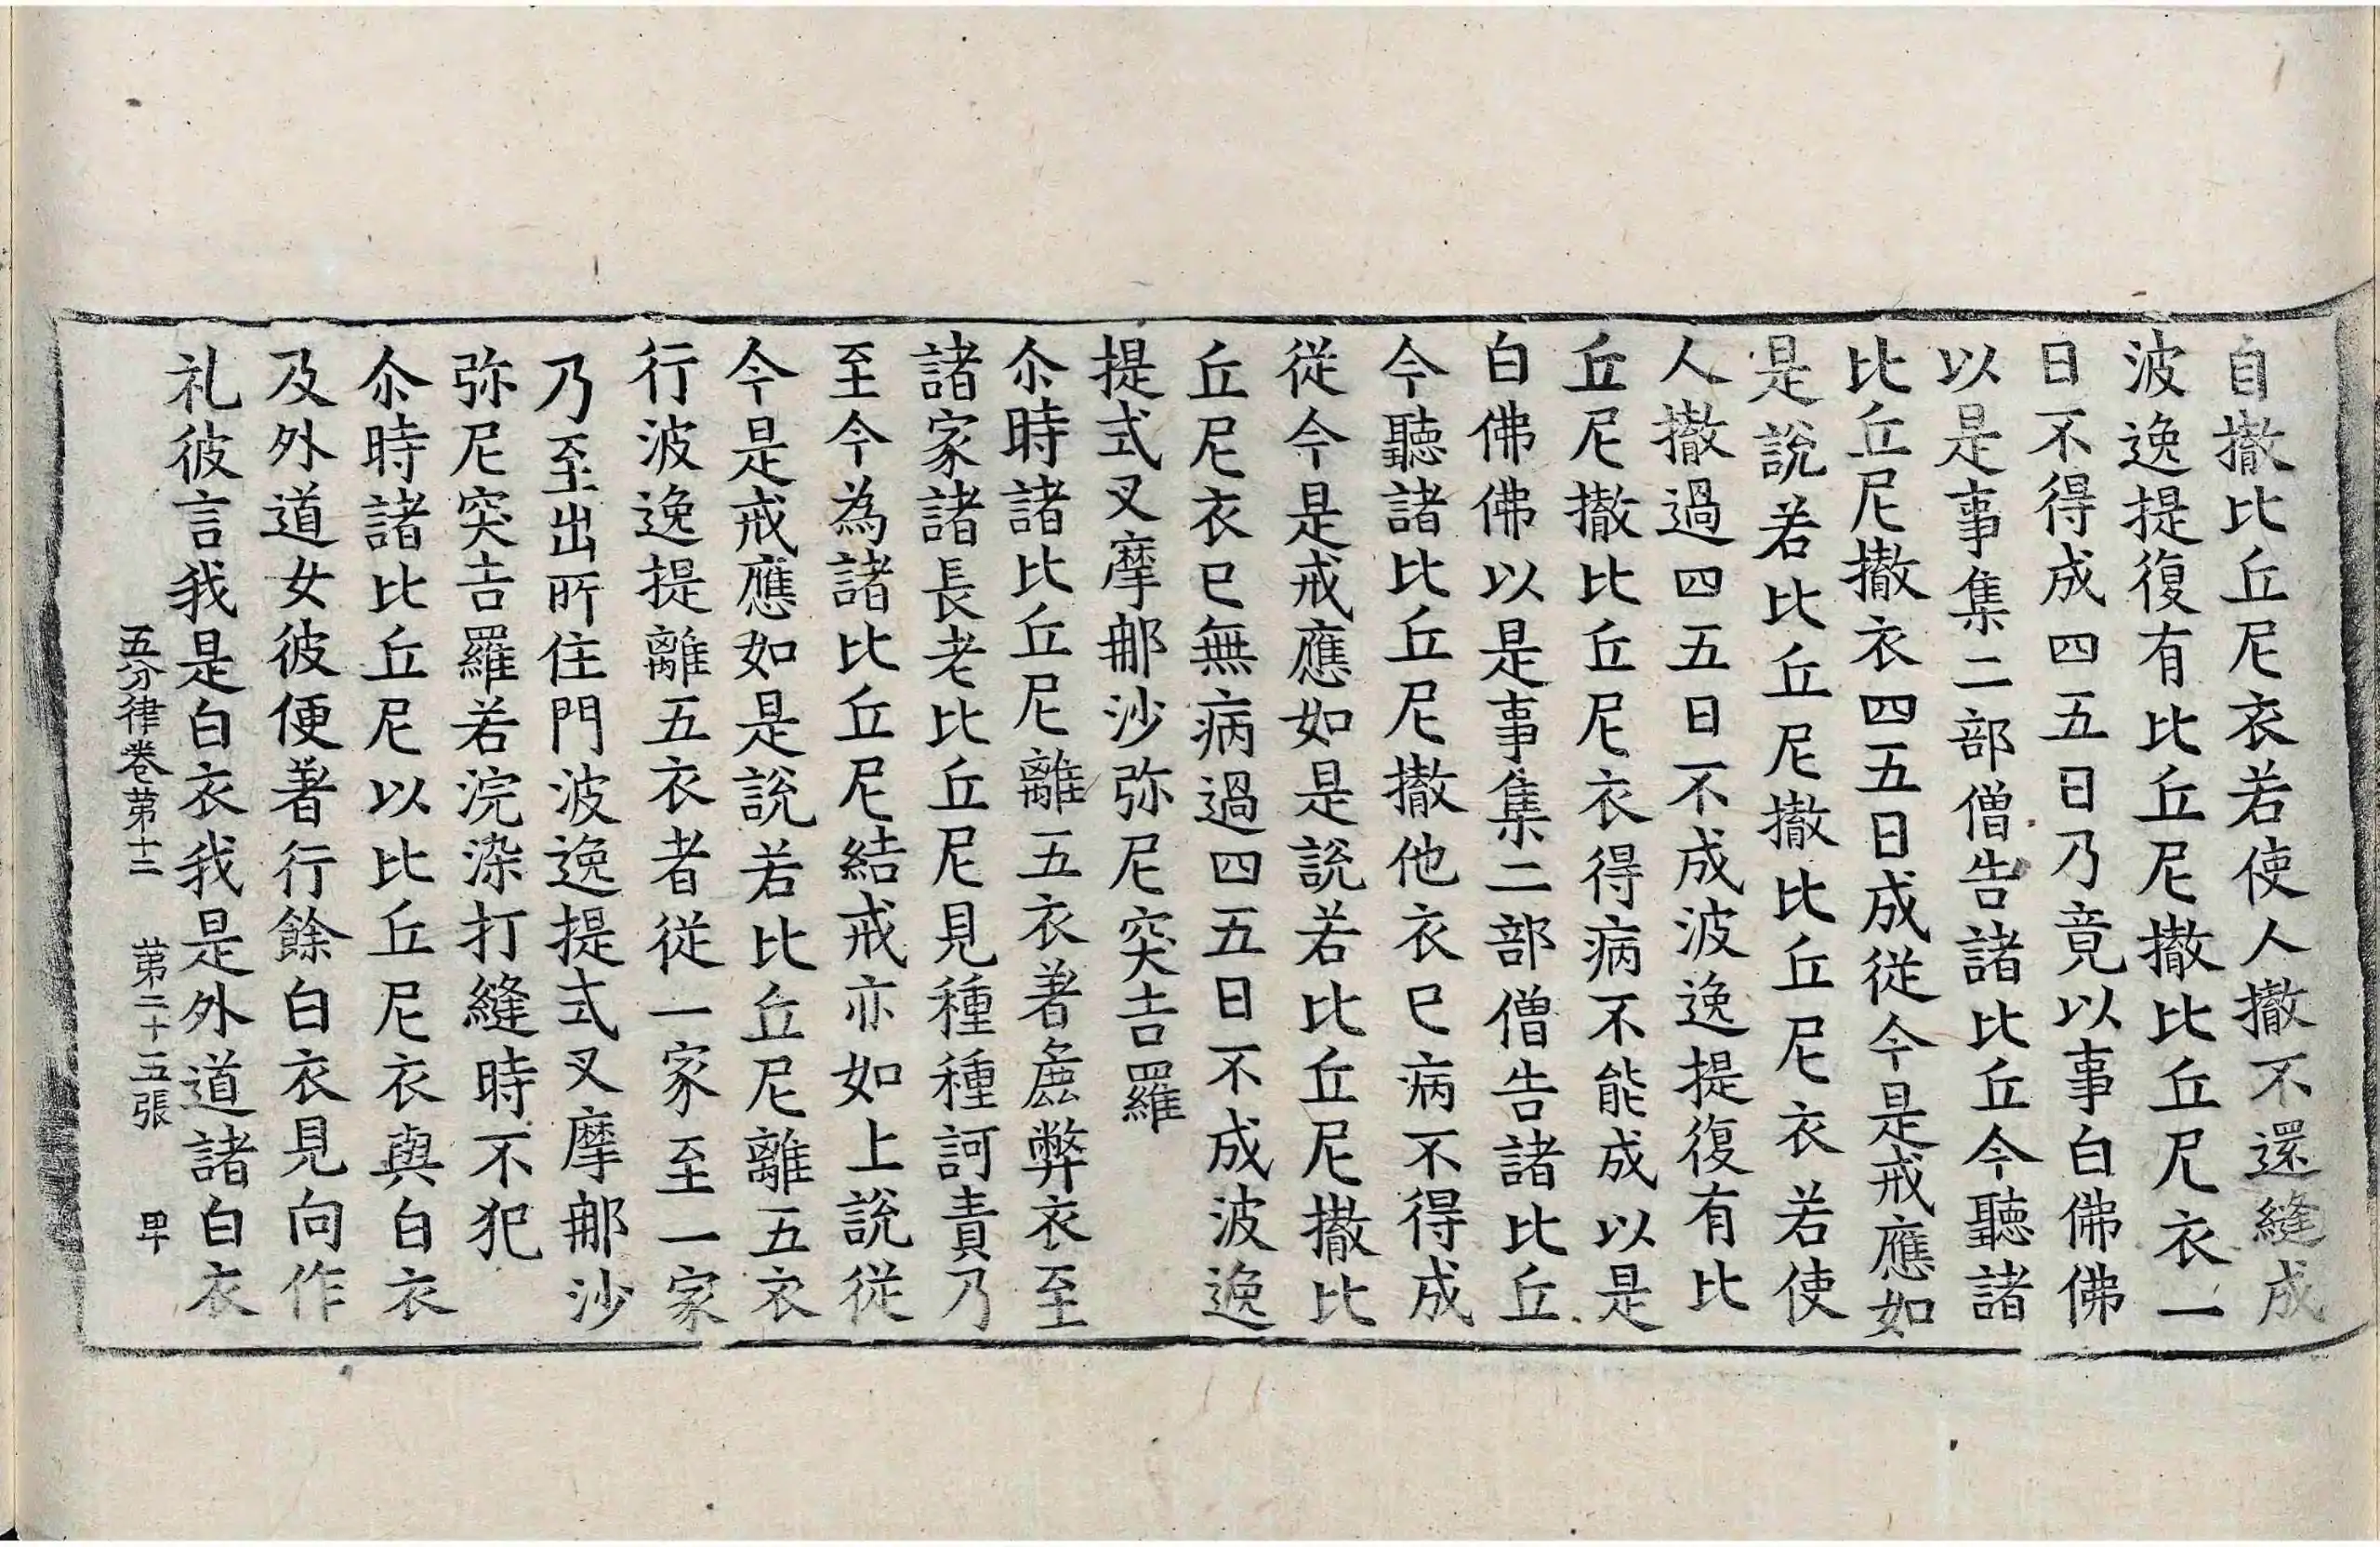 自撤比丘尼衣若使人撤不還縫成
波逸提復有比丘尼撤比丘尼衣一
日不得成四五日乃竟以事白佛佛
以是事集二部僧告諸比丘今聽諸
比丘尼撤衣四五日成從今是戒應如
是說若比丘尼撤比丘尼衣若使
人撤過四五日不成波逸提復有比
丘尼撤比丘尼衣得病不能成以是
白佛佛以是事集二部僧告諸比丘
今聽諸比丘尼撤他衣已病不得成
從今是戒應如是說若比丘尼撤比
丘尼衣已無病過四五日不成波逸
提式叉摩那沙弥尼突吉羅
尒時諸比丘尼離五衣著麁弊衣至
諸家諸長老比丘尼見種種訶責乃
至今為諸比丘尼結戒亦如上說從
今是戒應如是說若比丘尼離五衣
行波逸提離五衣者從一家至一家
乃至出所住門波逸提式叉摩那沙
弥尼突吉羅若浣染打縫時不犯
尒時諸比丘尼以比丘尼衣與白衣
及外道女彼便著行餘白衣見向作
礼彼言我是白衣我是外道諸白衣
五分律卷第十二 第二十五張 甲